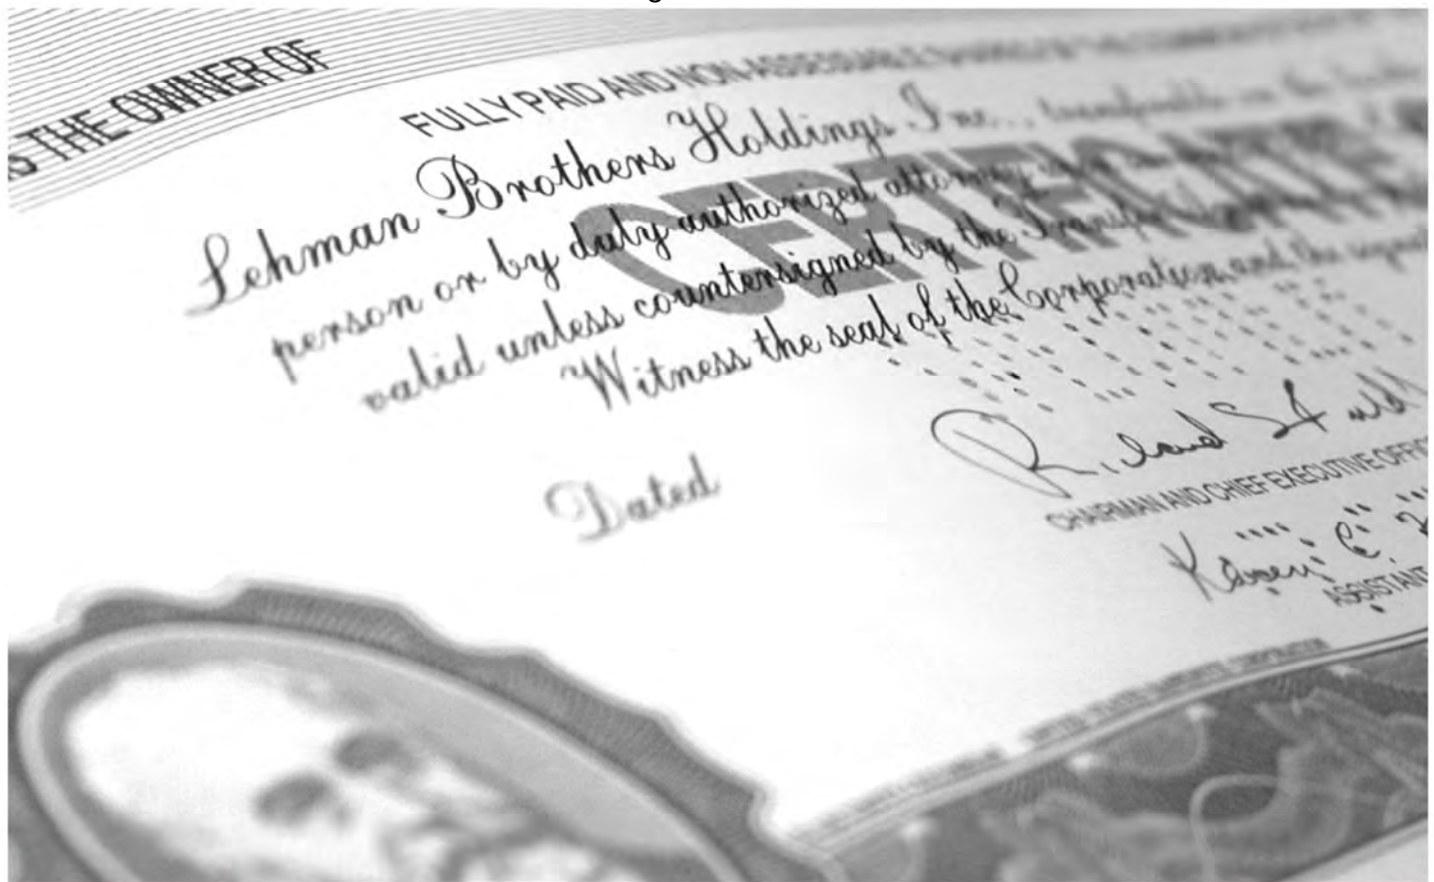 S THE OWNER OF
FULLY PAID AND NON-ASSESSABLE SHARES OF THE COMMON
Lehman Brothers Holdings Inc., transferable on the books
CERTIFICATE
person or by duly authorized attorney upon
valid unless countersigned by the Transfer
Witness the seal of the Corporation and the signat
Dated
Richard S Fuld
CHAIRMAN AND CHIEF EXECUTIVE OFFIC
Karen C.
ASSISTANT